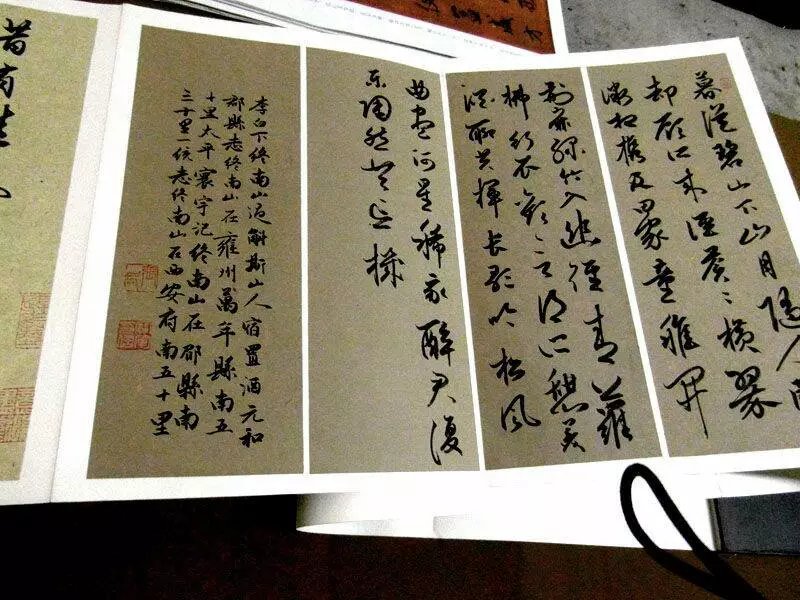 暮從碧山下山月隨人歸
却顧所來徑蒼〻橫翠
微相攜及田家童稚開
荊扉綠竹入幽徑青蘿
拂行衣歡言得所憩美
酒聊共揮長歌吟松風
曲盡河星稀我醉君復
樂陶然共忘機
李白下終南山過斛斯山人宿置酒元和
郡縣志終南山在雍州萬年縣南五
十里太平寰宇記終南山在鄠縣南
三十里一統志終南山在西安府南五十里
昔有佳人